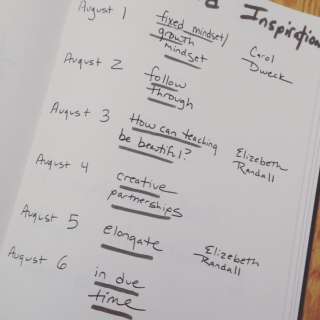 Inspiration
August 1 fixed mindset/
growth
mindset
Carol
Dweck
August 2 follow
through
August 3 How can teaching
be beautiful?
Elizebeth
Randall
August 4 creative
partnerships
August 5 elongate
Elizebeth
Randall
August 6 in due
time